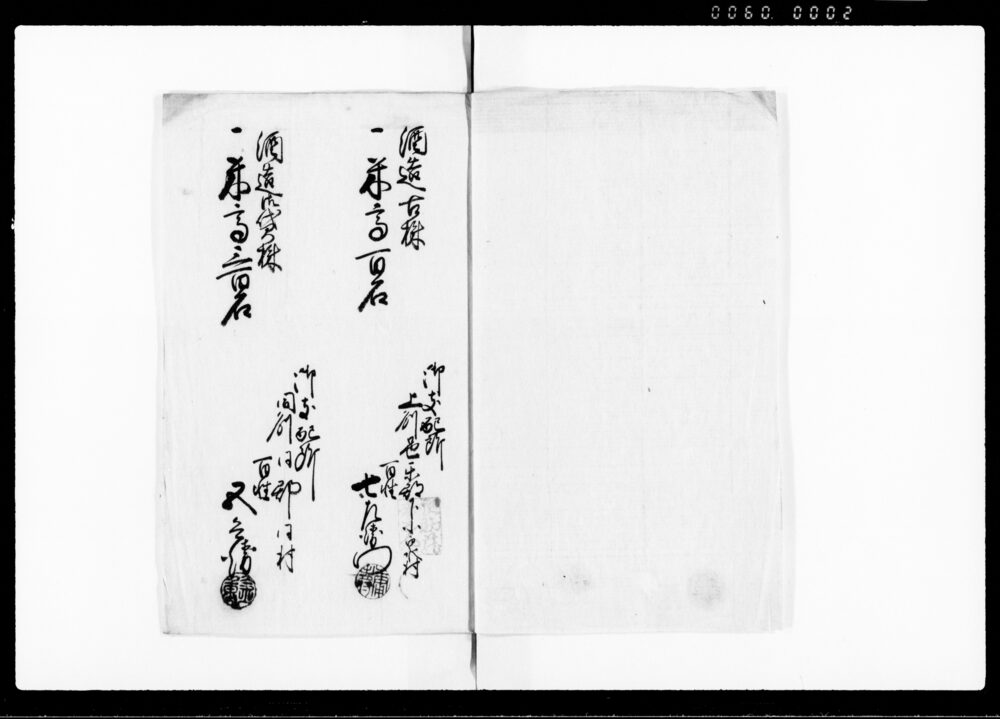 0060. 0002
酒造古株
一米高百石
御支配所
上州邑楽郡下小泉村
百姓
七左衛門
酒造御貸株
一米高三百石
御支配所
同州同郡同村
百姓
又兵衛